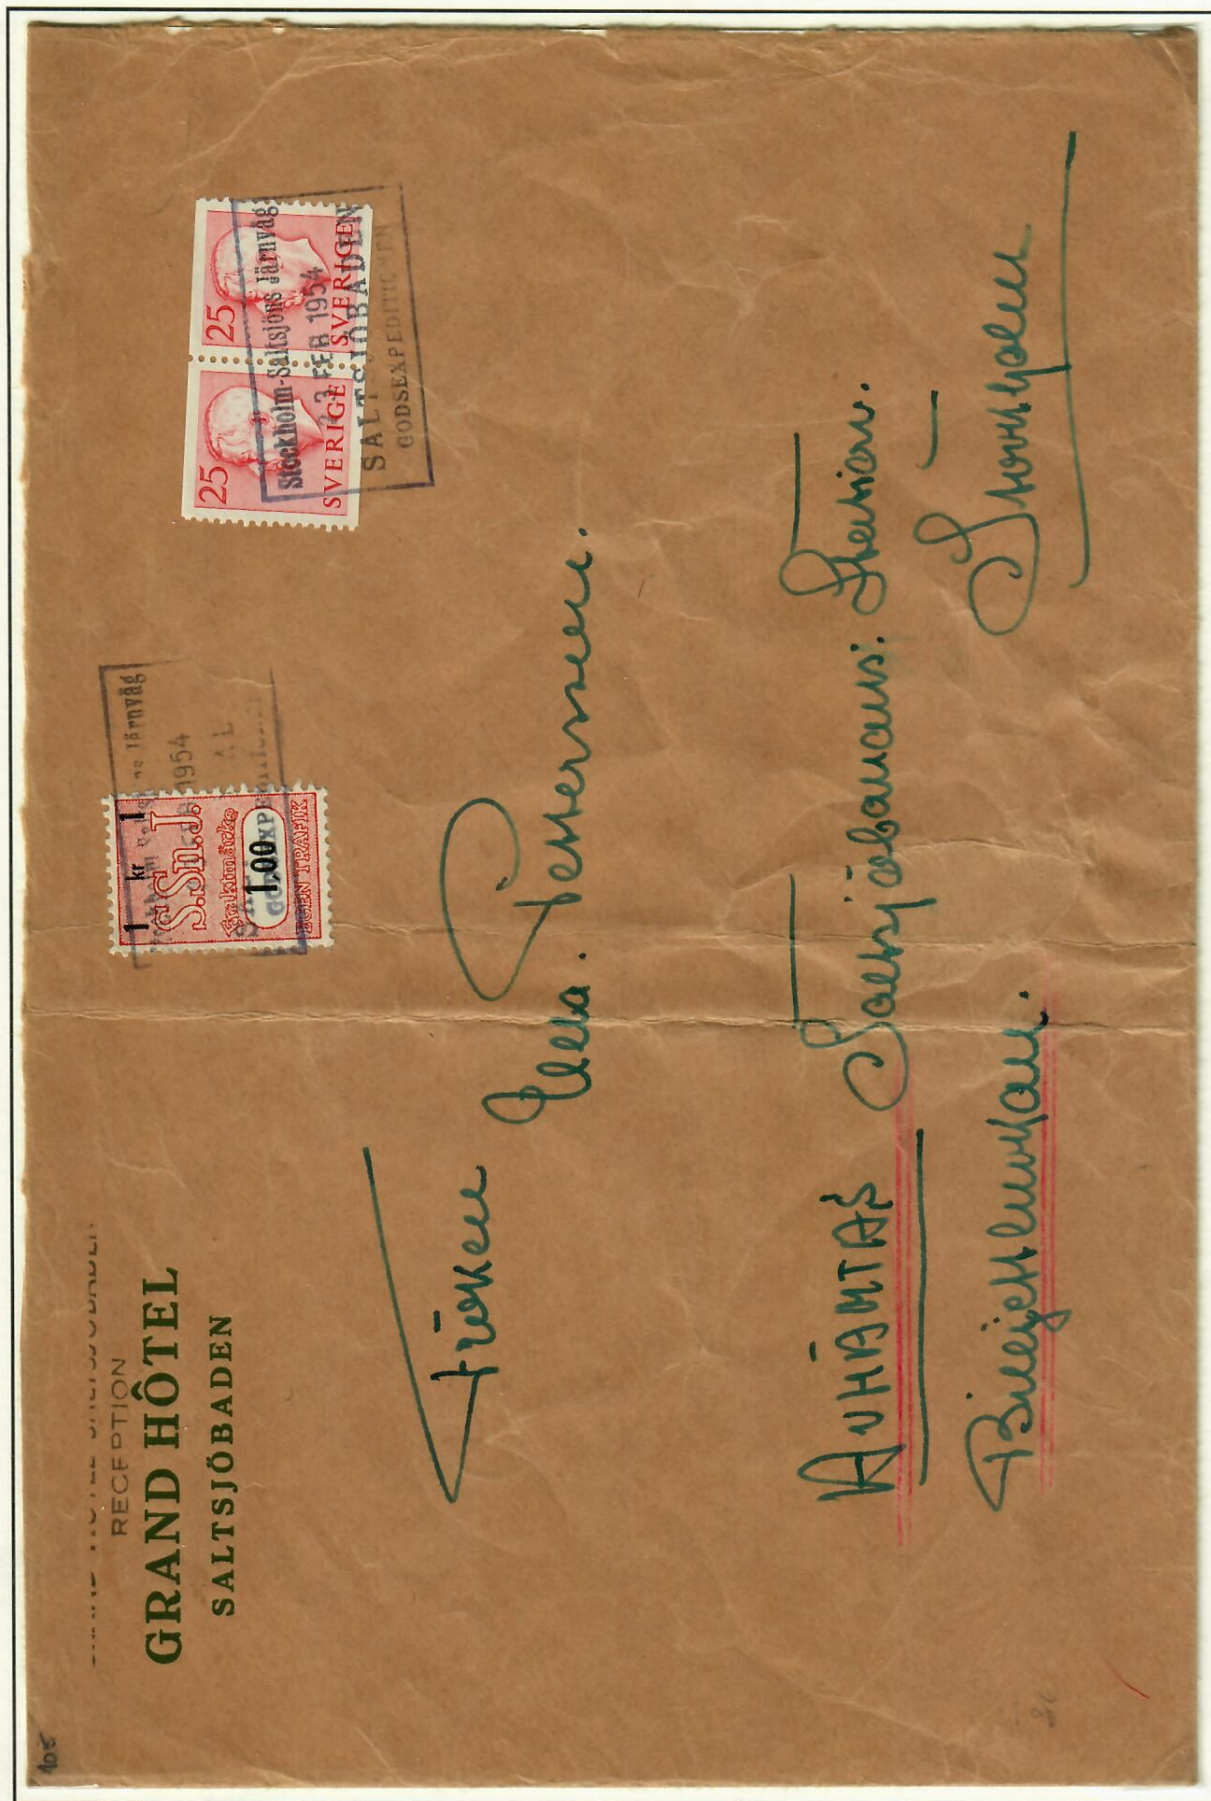 RECEPTION
GRAND HÔTEL
SALTSJÖBADEN
1 kr 1
S.Sn.J.
Fraktmärke
1.00
EGEN TRAFIK
Järnväg
1954
25 25
SVERIGE SVERIGE
Stockholm-Saltsjöns Järnväg
23 FEB 1954
SALTSJÖBADEN
GODSEXPEDITIONEN
Fröken
Ulla. Pettersson.
AVHÄMTAS Saltsjöbanans. Station.
Biljettluckan. Stockholm